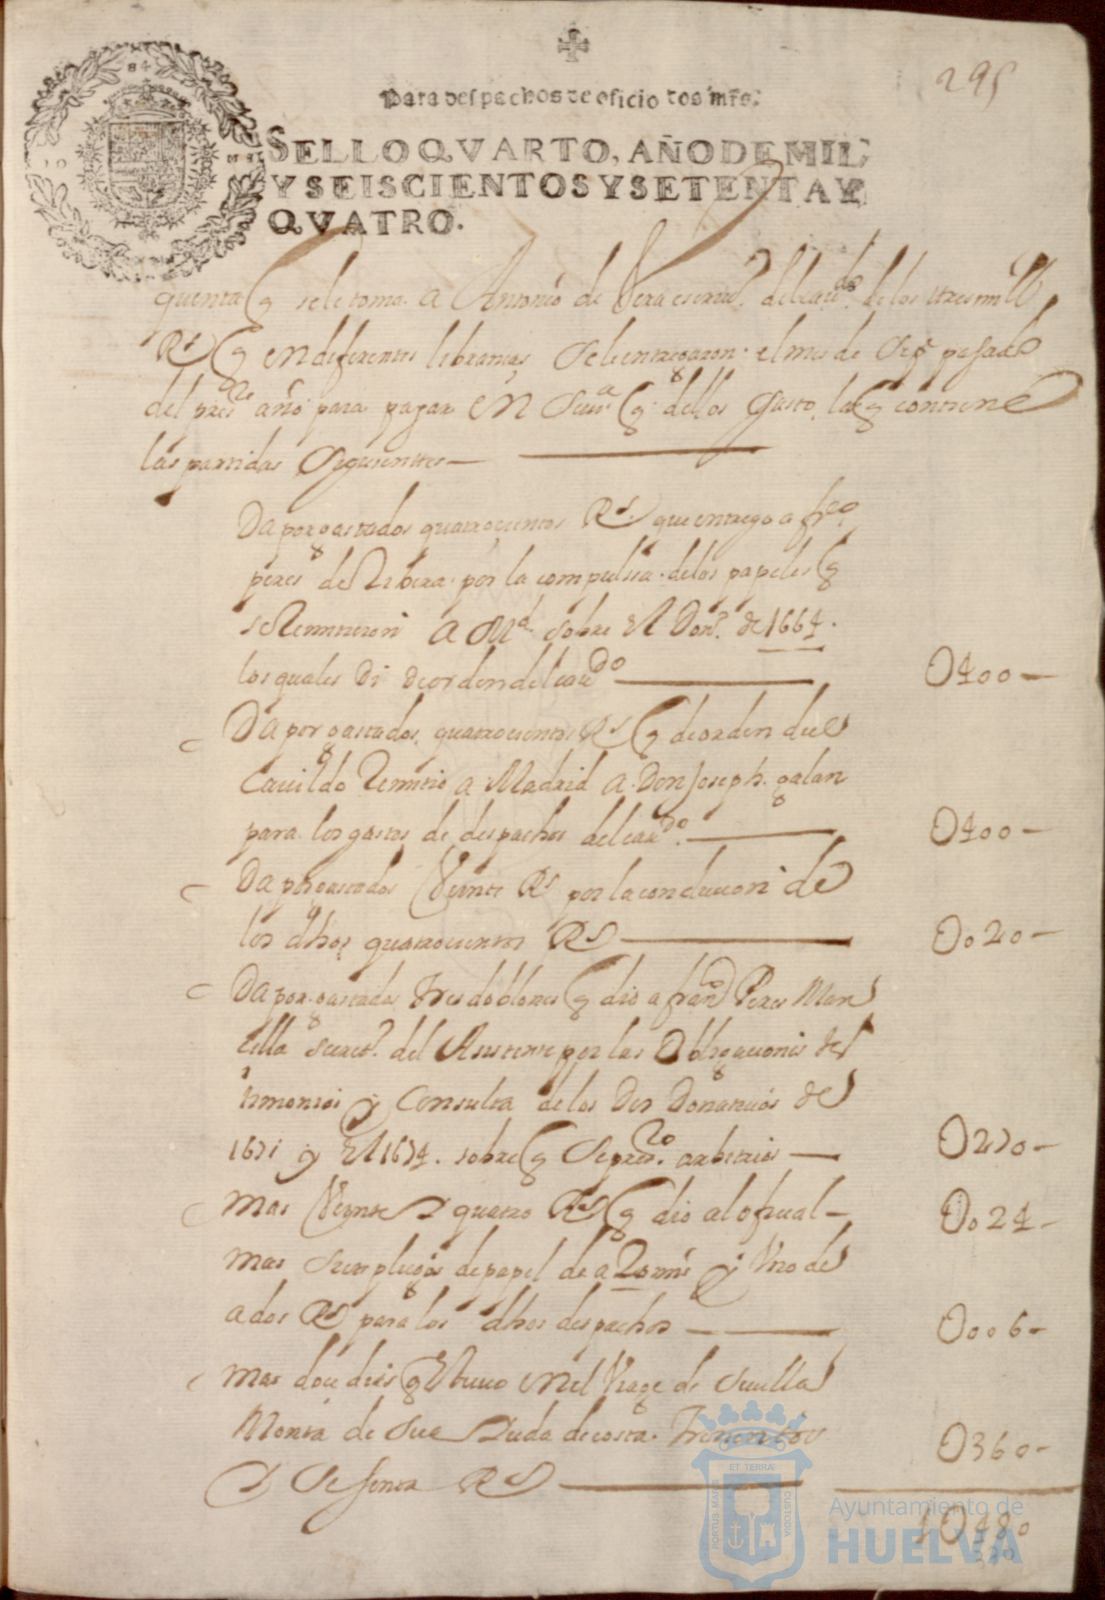 295
Para despachos de oficio dos mrs.
SELLO QVARTO, AÑO DE MIL
Y SEISCIENTOS Y SETENTA Y
QVATRO.
quenta q se le toma a Antonio de Vera escriu.º del caudo. de los tres mill
Rs q en diferentes libranças se le entregaron el mes de Sepe pasado
del preste año para pagar en Seua q dellos gasto, la q contiene
las partidas Siguientes
Da por gastados quatrocientos Rs. que entrego a frco
peres de Ribera por la compulsa de los papeles q
se Remitieron a Md sobre el Don.º de 1664.
los quales di de orden del caudo
0400
Da por gastados quatrocientos Rs q de orden del
Cauildo Remitio a Madrid a Don Joseph galan
para los gastos de despachos del caudo.
0400
Da por gastados Veinte Rs por la conduccion de
los dhos quatrocientos Rs
0020
Da por gastados tres doblones q dio a frano Peres Man
silla Secret.º del Asistente por las Obligaciones tes
timonios y Consulta de los Dos Donatiuos de
1671 y el 1674. sobre q Se preso. arbitrios
0270
mas Veinte y quatro Rs q dio al ofiual
0024
mas Seis pliegos de papel de a 20 mrs y Vno de
a dos Rs para los dhos despachos
0006
mas doce dias q Estuuo en el Viage de Seuilla
Monta de Su ayuda de costa Trecientos
y Sesenta Rs
0360
10480
ET TERRÆ
PORTUS MARIS
CUSTODIA
Ayuntamiento de
HUELVA